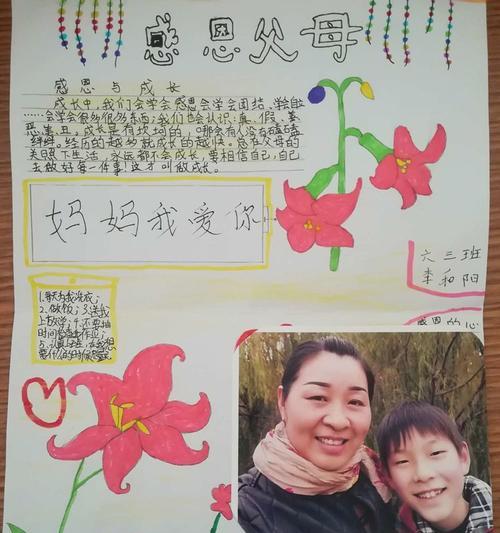 感恩父母
感恩与成长
成长中,我们会学会感恩会学会团结、学会自
……会学会很多很多东西;我们也会认识:真、假、善、
恶、美、丑。成长是有坎坷的,哪会有人没有磕磕
绊绊。经历的越多就成长的越快。总在父母的
关照下生活,永远都不会成长,要相信自己,自己
去做好每一件事!这才叫做成长。
妈妈我爱你
六三班
李和阳
感恩的心
1.每天为我洗衣;
2.做饭;3.送我
上下学;4.还要抽
时间检查作业;